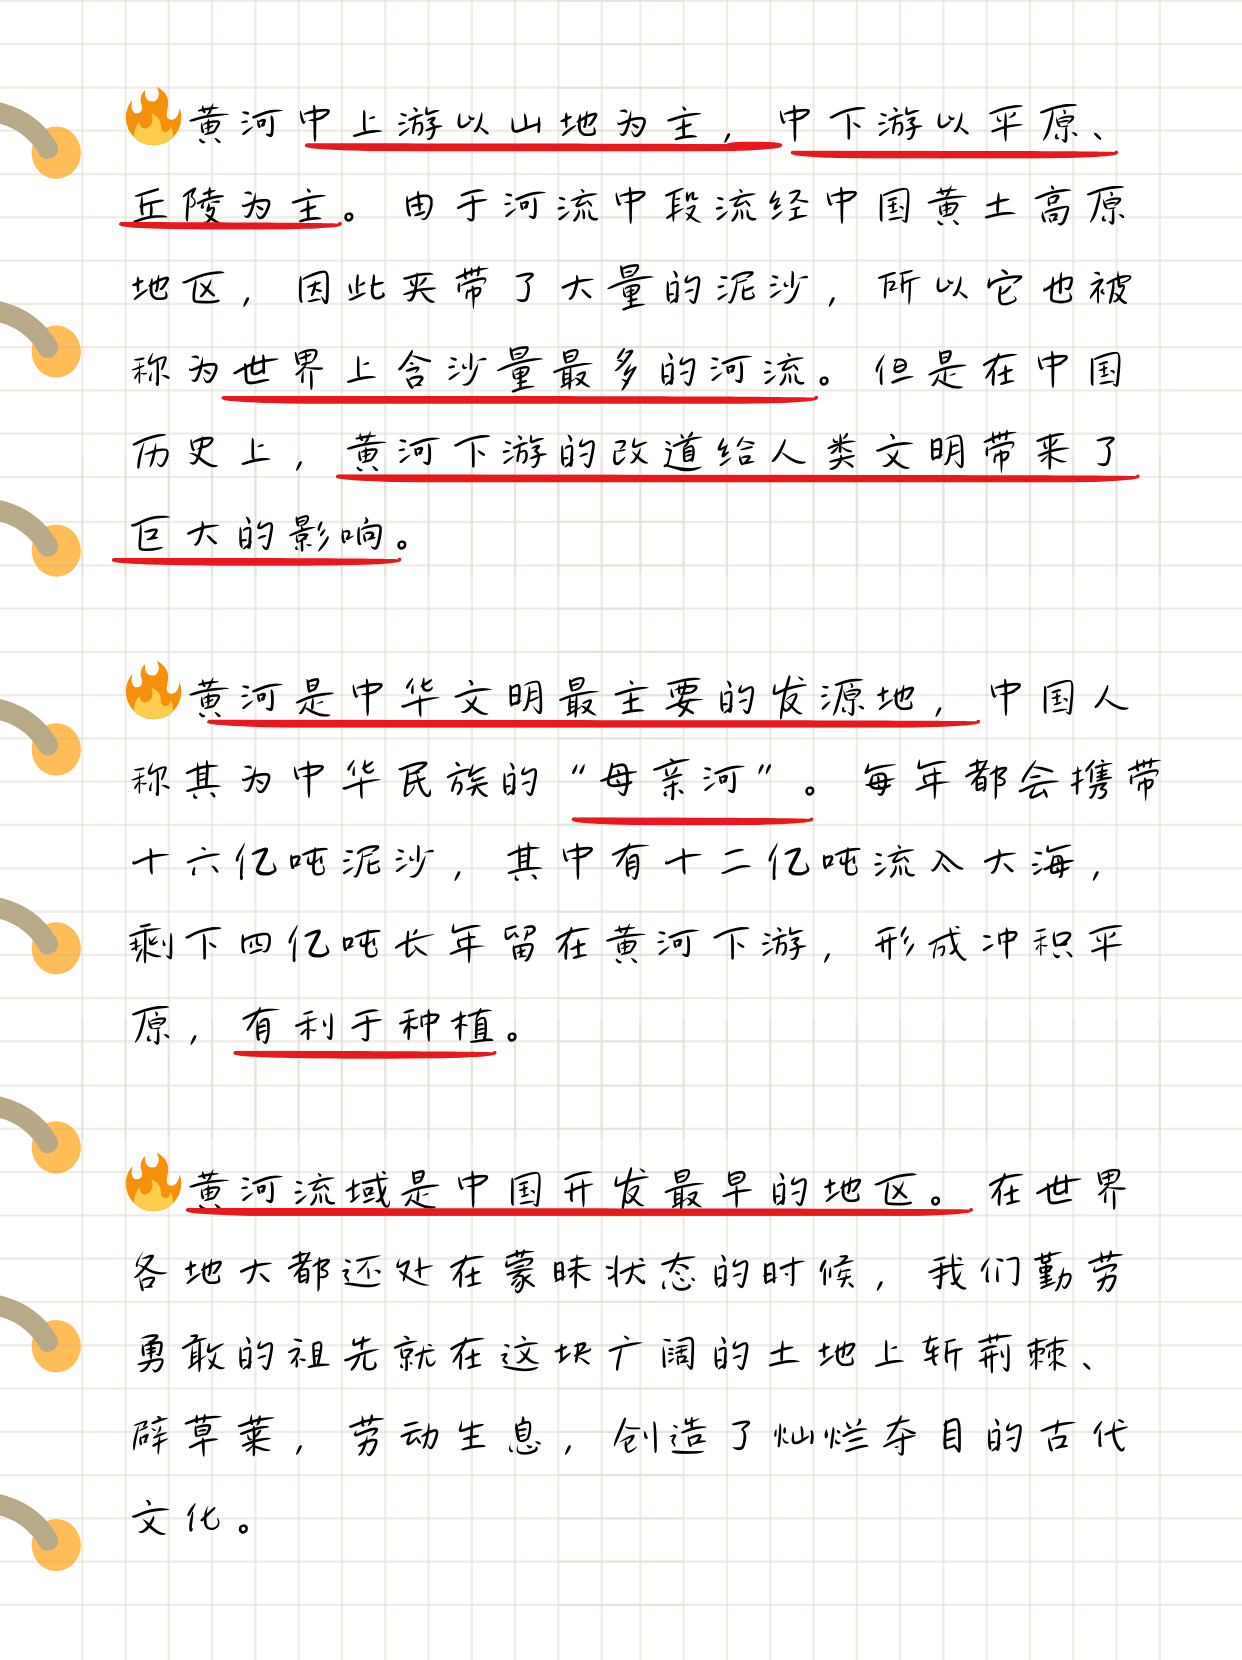 🔥黄河中上游以山地为主，中下游以平原、
丘陵为主。由于河流中段流经中国黄土高原
地区，因此夹带了大量的泥沙，所以它也被
称为世界上含沙量最多的河流。但是在中国
历史上，黄河下游的改道给人类文明带来了
巨大的影响。
🔥黄河是中华文明最主要的发源地，中国人
称其为中华民族的“母亲河”。每年都会携带
十六亿吨泥沙，其中有十二亿吨流入大海，
剩下四亿吨长年留在黄河下游，形成冲积平
原，有利于种植。
🔥黄河流域是中国开发最早的地区。在世界
各地大都还处在蒙昧状态的时候，我们勤劳
勇敢的祖先就在这块广阔的土地上斩荆棘、
辟草莱，劳动生息，创造了灿烂夺目的古代
文化。